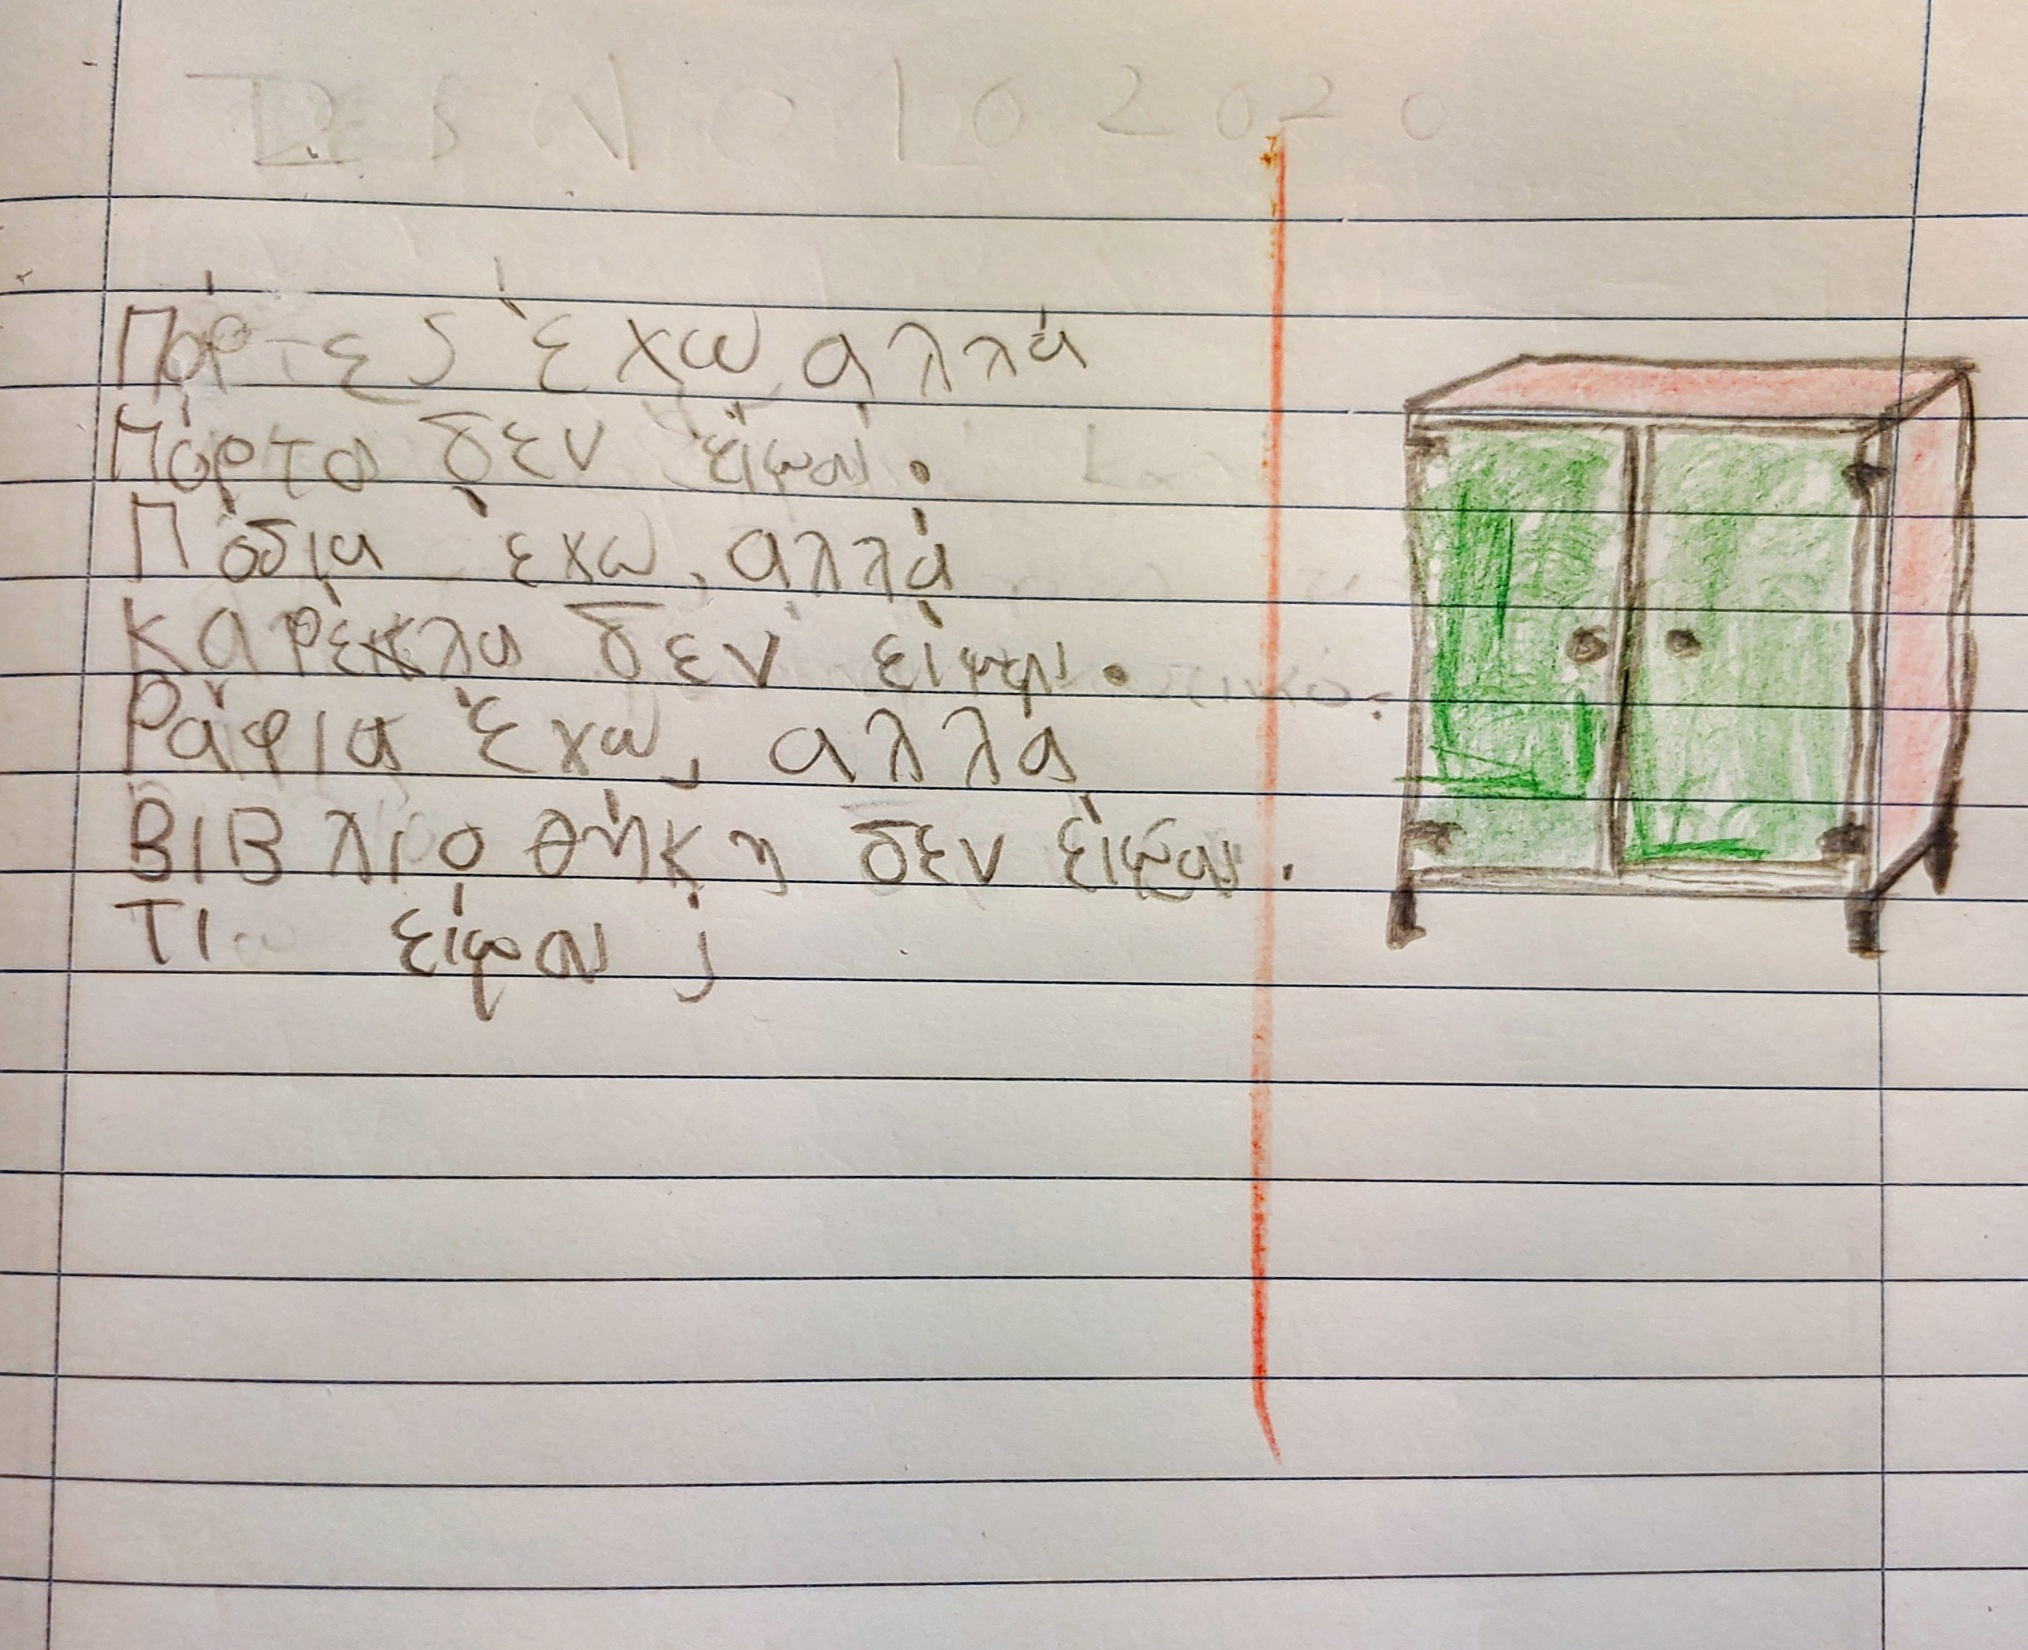 Πόρτες έχω αλλά
Πόρτα δεν είμαι.
Πόδια έχω, αλλά
καρέκλα δεν είμαι.
Ράφια έχω, αλλά
ΒΙΒλιοθήκη δεν είμαι.
ΤΙ είμαι ;